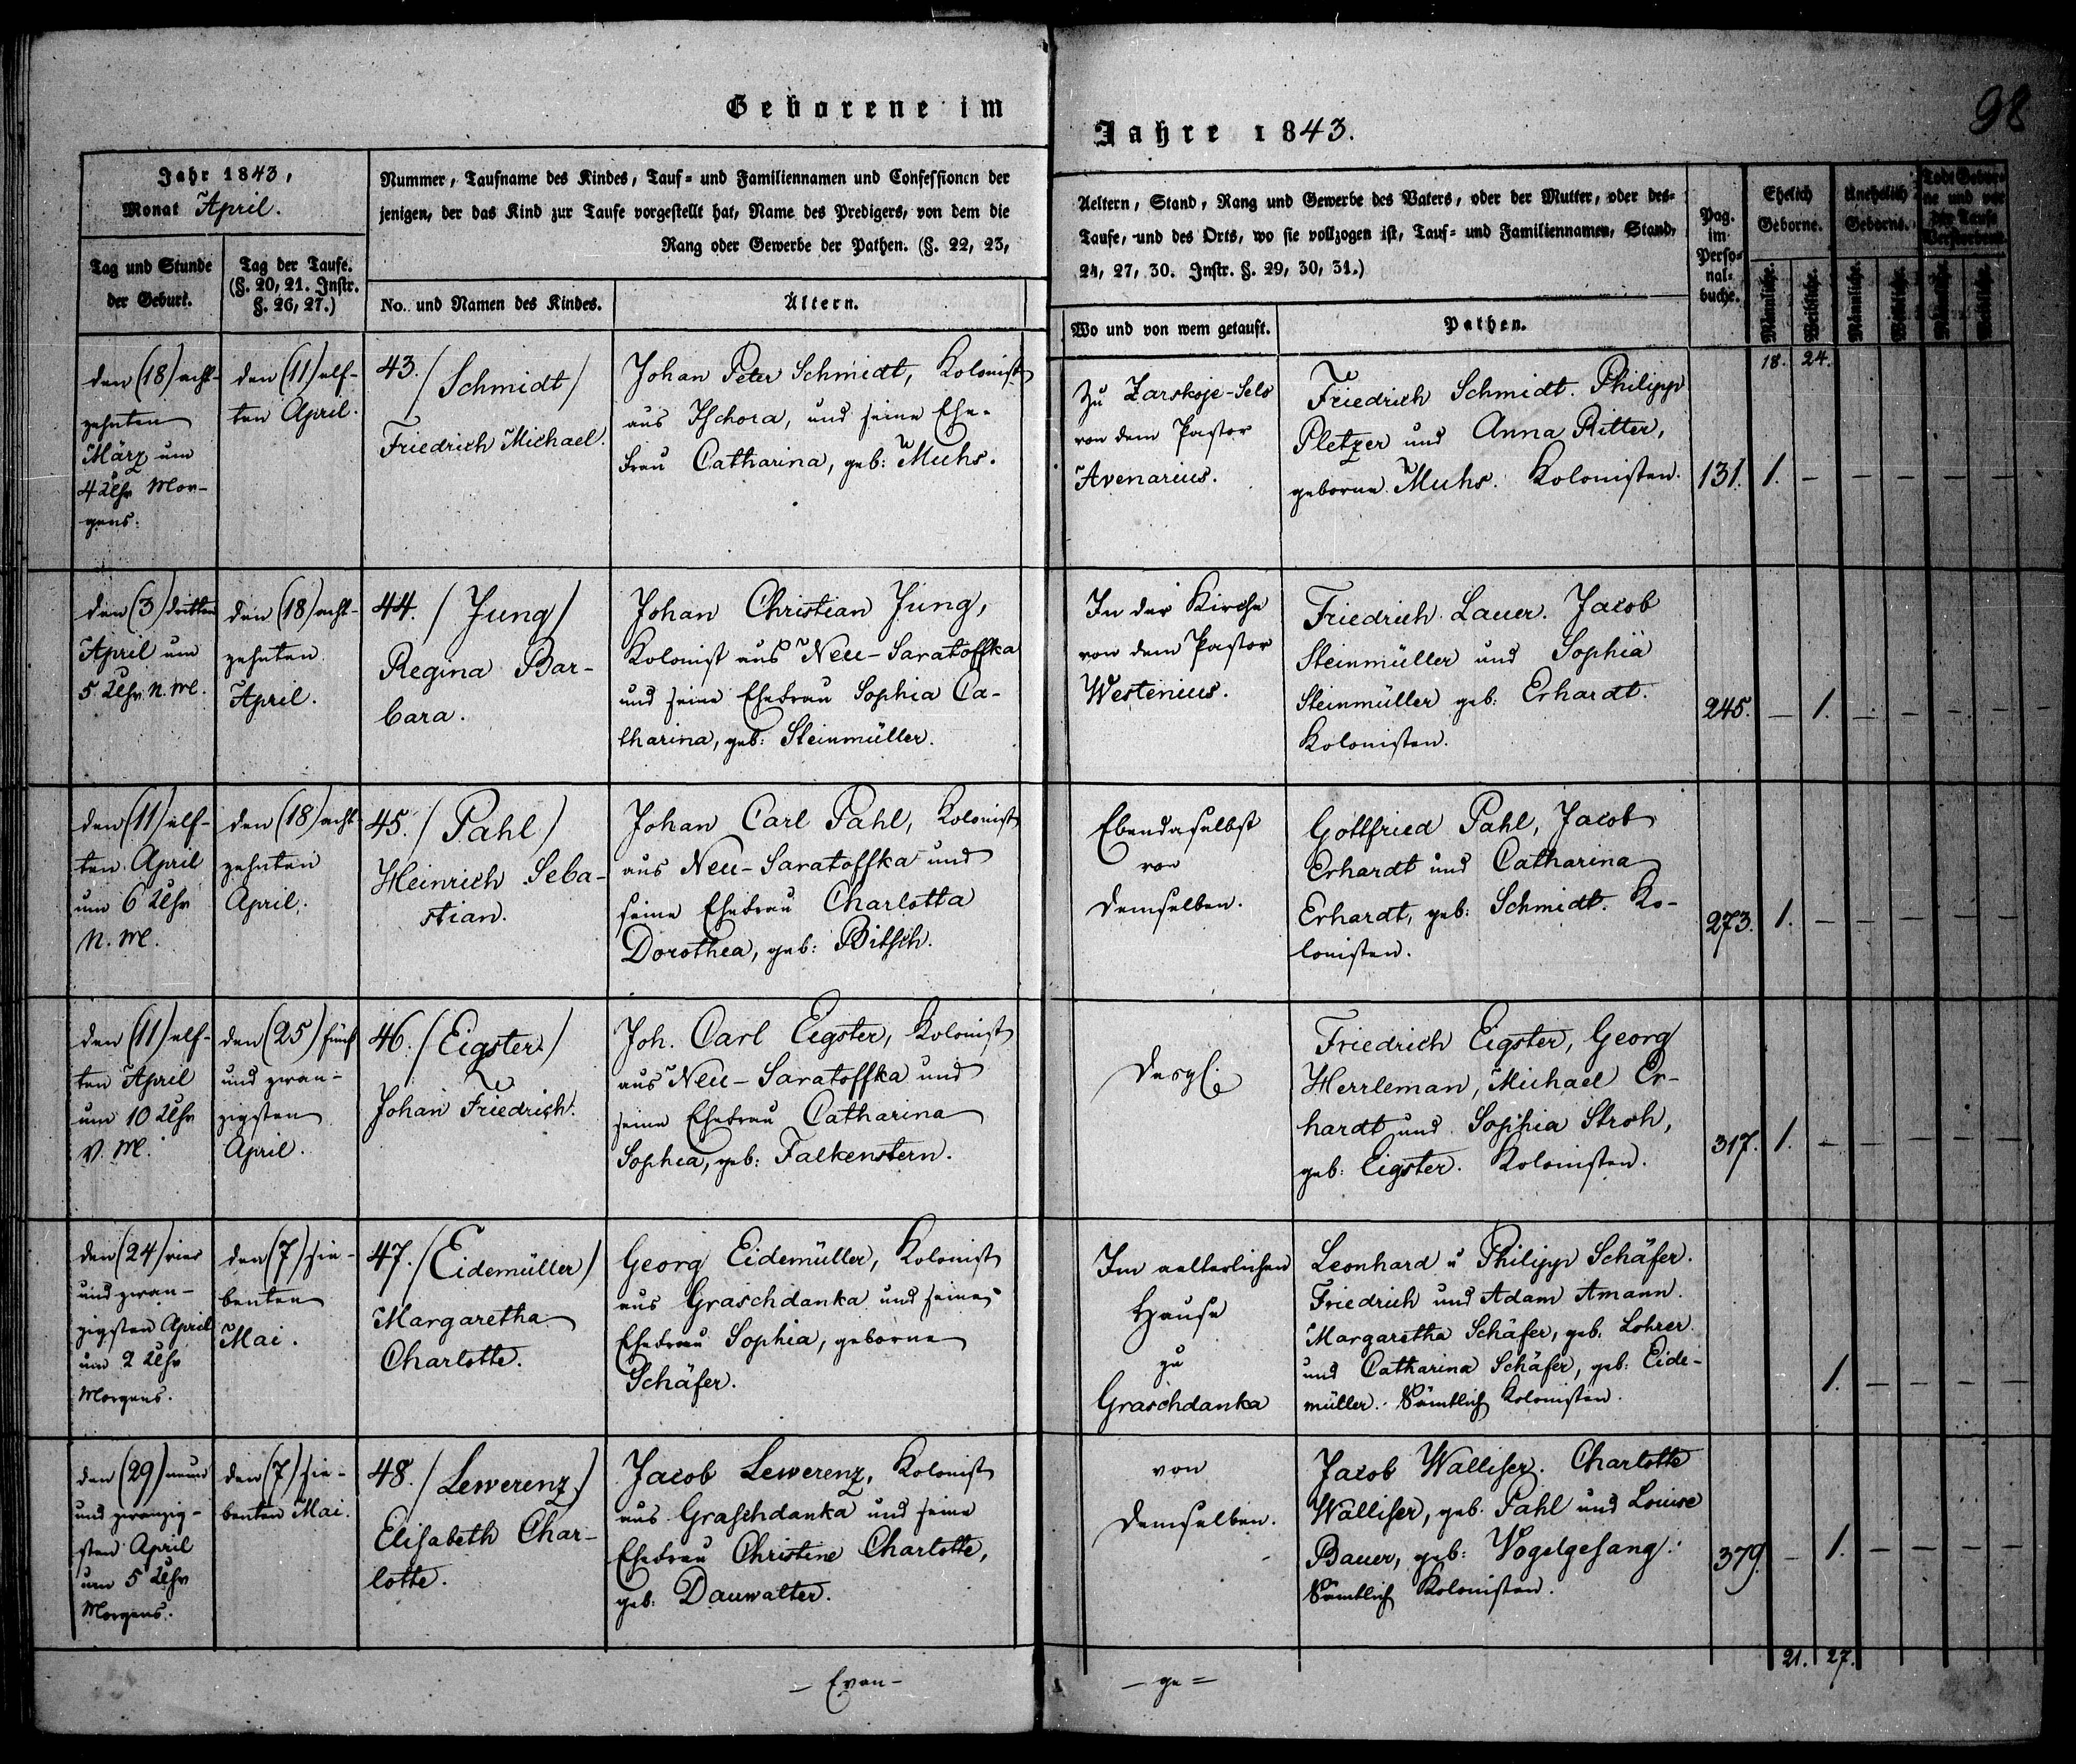 Geborene im
Jahre 1843.
98
Jahr 1843,
Monat April.
Tag und Stunde
der Geburt.
Tag der Taufe.
(§. 20, 21. Instr.
§. 26, 27.)
Nummer, Taufname des Kindes, Tauf- und Familiennamen und Confessionen der
jenigen, der das Kind zur Taufe vorgestellt hat, Name des Predigers, von dem die
Rang oder Gewerbe der Pathen. (§. 22, 23,
No. und Namen des Kindes.
Ältern.
Aeltern, Stand, Rang und Gewerbe des Vaters, oder der Mutter, oder des-
Taufe, und des Orts, wo sie vollzogen ist, Tauf- und Familiennamen, Stand,
24, 27, 30. Instr. §. 29, 30, 31.)
Wo und von wem getauft.
Pathen.
Pag.
im
Perso-
nal-
buche.
Ehelich
Geborne.
Unehelich
Geborne.
Todt Gebor-
ne und vor
der Taufe
Verstorbene.
Männliche.
Weibliche.
Männliche.
Weibliche.
Männliche.
Weibliche.
18. 24.
den (18) acht-
zehnten
März um
4 Uhr Mor-
gens.
den (11) elf-
ten April.
43. / Schmidt /
Friedrich Michael.
Johan Peter Schmidt, Kolonist
aus Ischora, und seine Ehe-
frau Catharina, geb: Muhs.
Zu Zarskoje-Selo
von dem Pastor
Avenarius.
Friedrich Schmidt. Philipp
Pletzer und Anna Ritter,
geborne Muhs. Kolonisten.
131. 1. – – – – –
den (3) dritten
April um
5 Uhr N. M.
den (18) acht-
zehnten
April.
44. / Jung /
Regina Bar-
bara.
Johan Christian Jung,
Kolonist aus Neu-Saratoffka
und seine Ehefrau Sophia Ca-
tharina, geb: Steinmüller.
In der Kirche
von dem Pastor
Westenius.
Friedrich Lauer. Jacob
Steinmüller und Sophia
Steinmüller geb: Erhardt.
Kolonisten.
245. – 1. – – – –
den (11) elf-
ten April
um 6 Uhr
N. M.
den (18) acht
zehnten
April.
45. / Pahl /
Heinrich Seba-
stian.
Johan Carl Pahl, Kolonist
aus Neu-Saratoffka und
seine Ehefrau Charlotta
Dorothea, geb: Bitsch.
Ebendaselbst
von
demselben.
Gottfried Pahl, Jacob
Erhardt und Catharina
Erhardt, geb: Schmidt. Ko-
lonisten.
273. 1. – – – – –
den (11) elf-
ten April
um 10 Uhr
V. M.
den (25) fünf
und zwan-
zigsten
April.
46. / Eigster /
Johan Friedrich.
Joh. Carl Eigster, Kolonist
aus Neu-Saratoffka und
seine Ehefrau Catharina
Sophia, geb: Falkenstern.
Desgl.
Friedrich Eigster, Georg
Herrleman, Michael Er-
hardt und Sophia Stroh,
geb: Eigster. Kolonisten.
317. 1. – – – – –
den (24) vier
und zwan-
zigsten April
um 2 Uhr
Morgens.
den (7) sie-
benten
Mai.
47. / Eidemüller /
Margaretha
Charlotte.
Georg Eidemüller, Kolonist
aus Graschdanka und seine
Ehefrau Sophia, geborne
Schäfer.
Im aelterlichen
Hause
zu
Graschdanka
Leonhard u Philipp Schäfer.
Friedrich und Adam Amann.
Margaretha Schäfer, geb: Lohrer
und Catharina Schäfer, geb: Eide-
müller. Sämtlich Kolonisten.
1. – – – –
den (29) neun
und zwanzig-
sten April
um 5 Uhr
Morgens.
den (7) sie-
benten Mai.
48. / Lewerenz /
Elisabeth Char-
lotte.
Jacob Lewerenz, Kolonist
aus Graschdanka und seine
Ehefrau Christine Charlotte,
geb: Dauwalter.
von
demselben.
Jacob Walliser. Charlotte
Walliser, geb. Pahl und Louise
Bauer, geb: Vogelgesang.
Sämtlich Kolonisten.
379. – 1. – – – –
21. 27.
– Evan –
– ge =